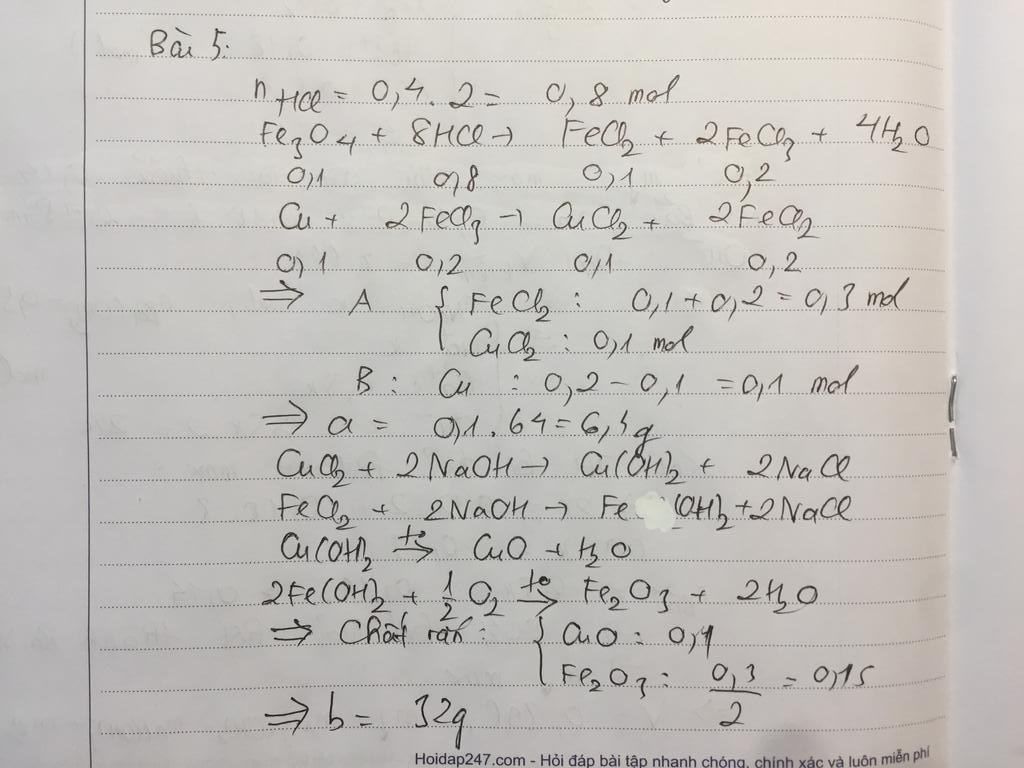 Bài 5:
nHCl = 0,4 . 2 = 0,8 mol
Fe3O4 + 8HCl → FeCl2 + 2FeCl3 + 4H2O
0,1 0,8 0,1 0,2
Cu + 2FeCl3 → CuCl2 + 2FeCl2
0,1 0,2 0,1 0,2
⇒ A { FeCl2 : 0,1 + 0,2 = 0,3 mol
CuCl2 : 0,1 mol
B : Cu : 0,2 - 0,1 = 0,1 mol
⇒ a = 0,1 . 64 = 6,4g
CuCl2 + 2NaOH → Cu(OH)2 + 2NaCl
FeCl2 + 2NaOH → Fe (OH)2 + 2NaCl
Cu(OH)2 to→ CuO + H2O
2Fe(OH)2 + 1/2 O2 to→ Fe2O3 + 2H2O
⇒ Chất rắn : { CuO : 0,1
Fe2O3 : 0,3/2 = 0,15
⇒ b = 32g
Hoidap247.com - Hỏi đáp bài tập nhanh chóng, chính xác và luôn miễn phí